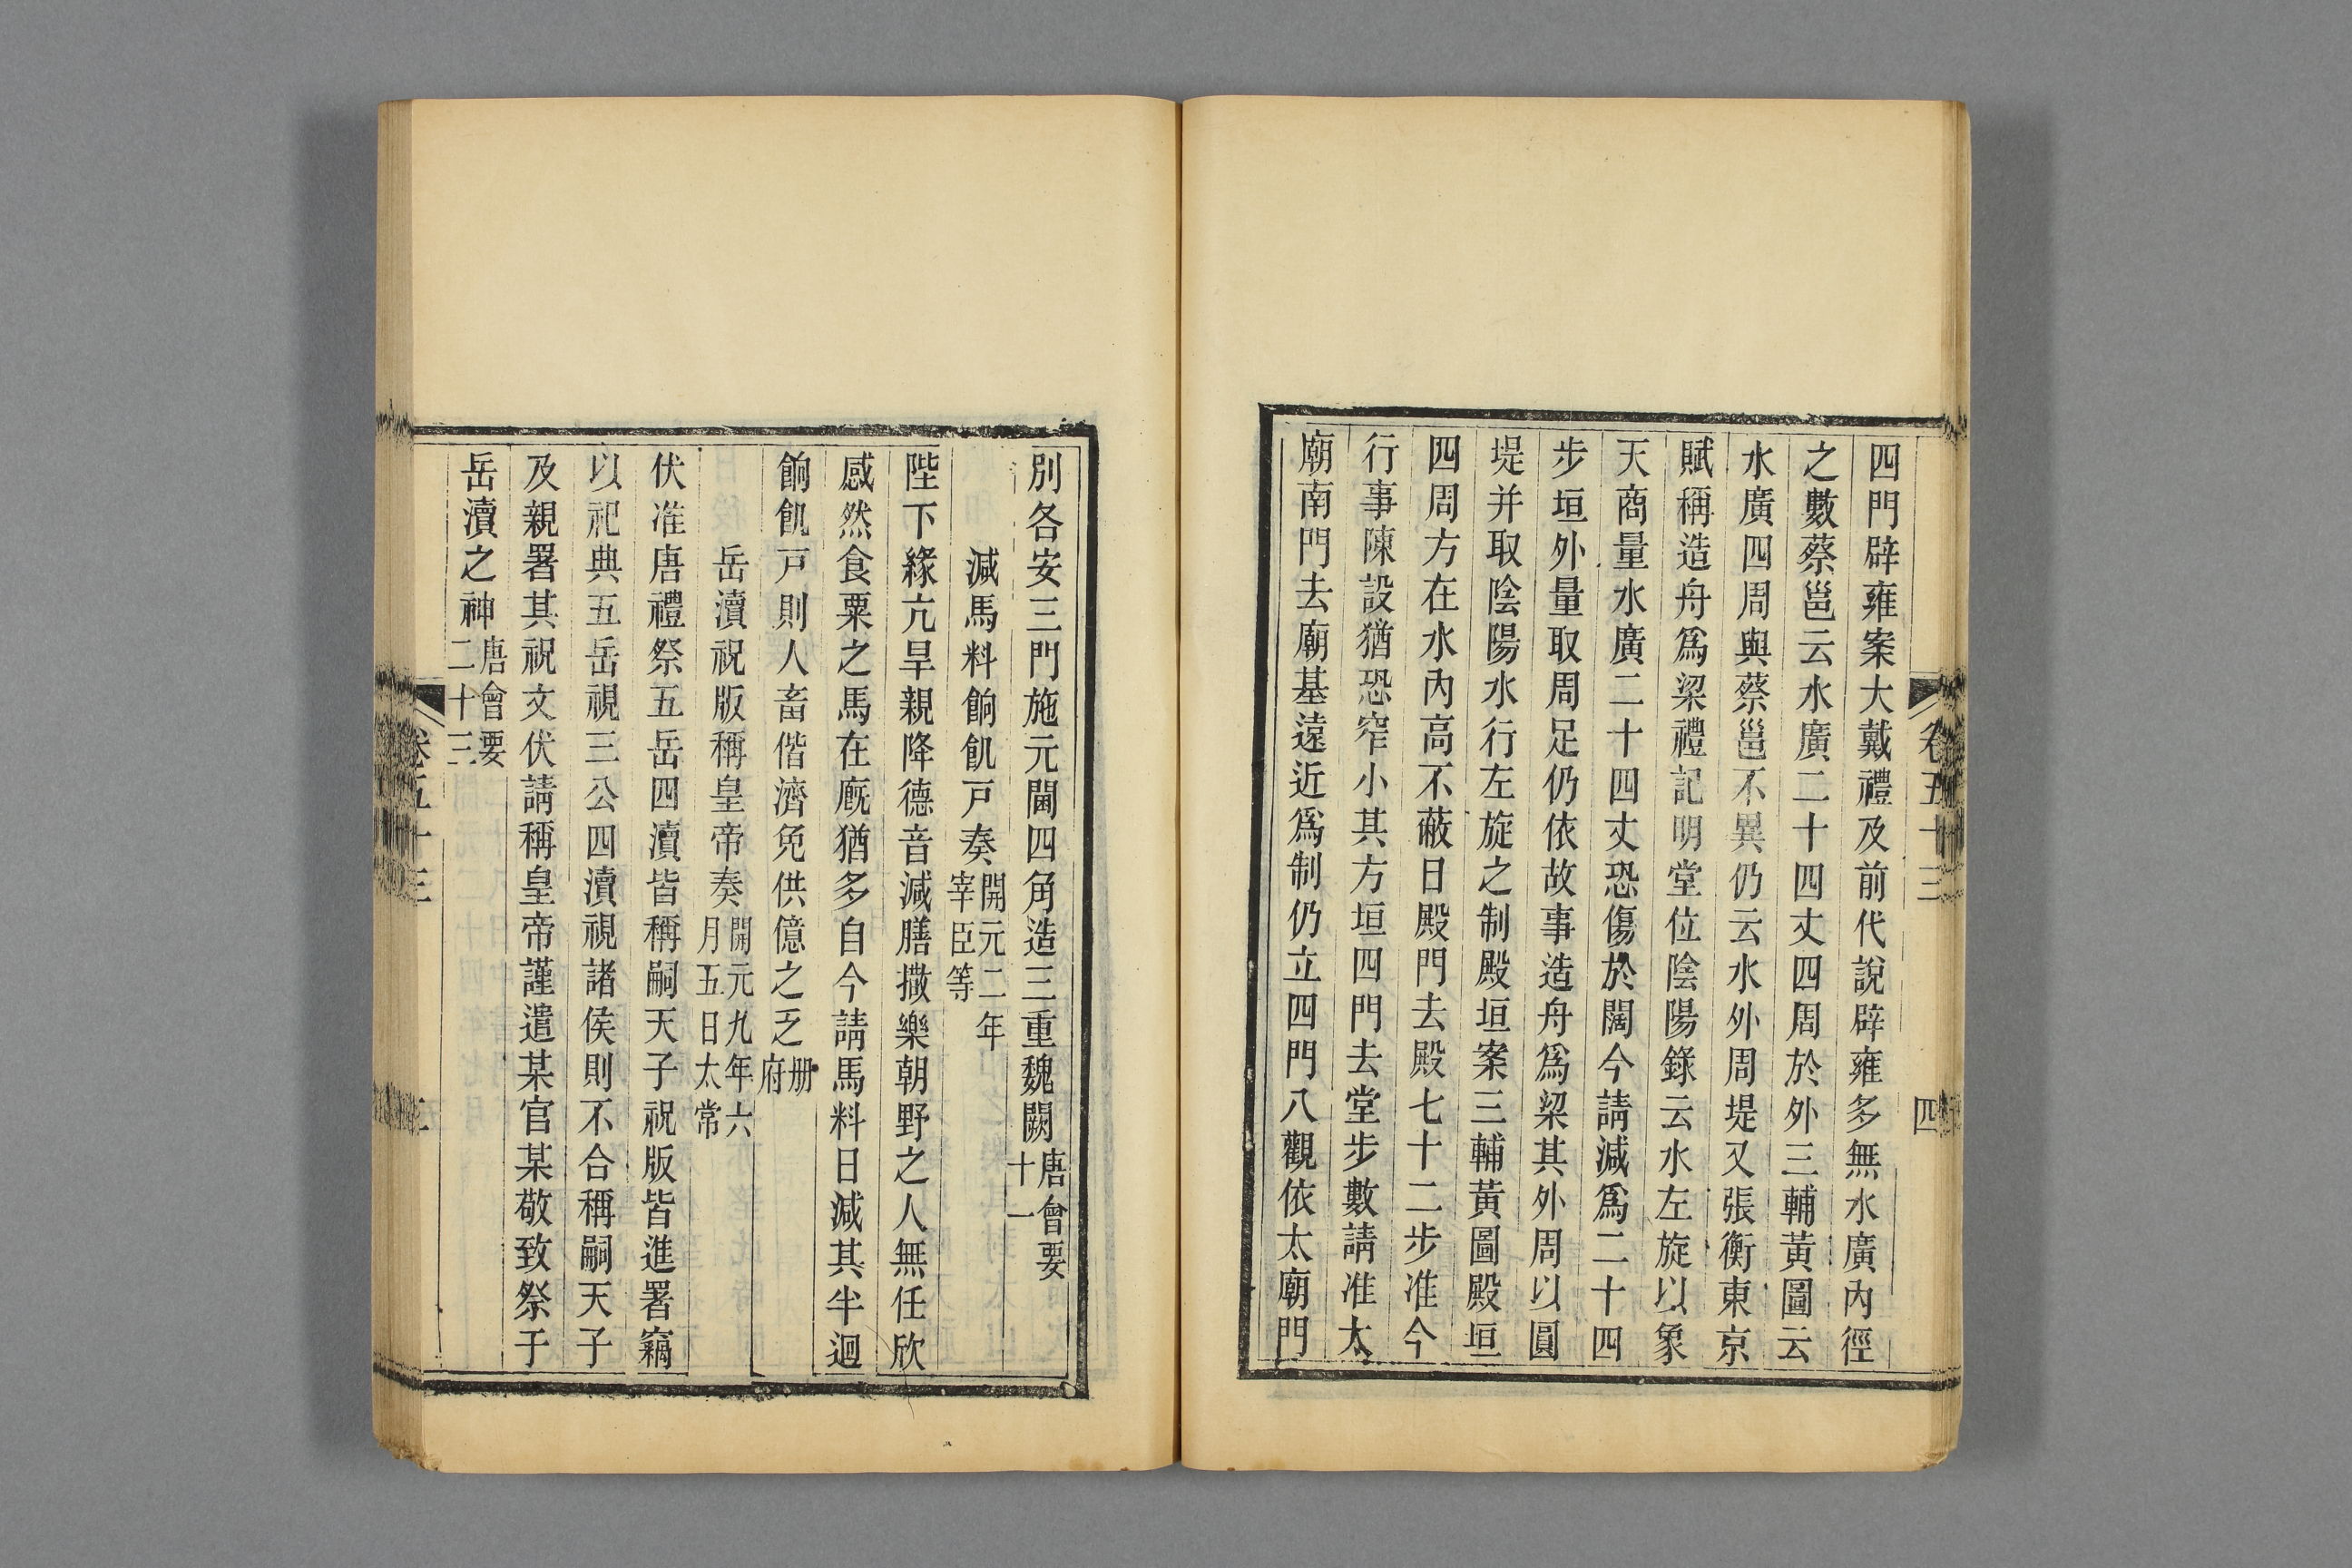 四門辟雍案大戴禮及前代說辟雍多無水廣內徑
之數蔡邕云水廣二十四丈四周於外三輔黃圖云
水廣四周與蔡邕不異仍云水外周堤又張衡東京
賦稱造舟爲梁禮記明堂位陰陽錄云水左旋以象
天商量水廣二十四丈恐傷於闊今請減爲二十四
步垣外量取周足仍依故事造舟爲梁其外周以圓
堤并取陰陽水行左旋之制殿垣案三輔黃圖殿垣
四周方在水內高不蔽日殿門去殿七十二步准今
行事陳設猶恐窄小其方垣四門去堂步數請准太
廟南門去廟基遠近爲制仍立四門八觀依太廟門
卷五十三
四
別各安三門施元閫四角造三重魏闕唐會要
十一
減馬料餉飢戸奏開元二年
宰臣等
陛下緣亢旱親降德音減膳撒樂朝野之人無任欣
感然食粟之馬在廐猶多自今請馬料日減其半迴
餉飢戸則人畜偕濟免供億之乏册
府
岳瀆祝版稱皇帝奏開元九年六
月五日太常
伏准唐禮祭五岳四瀆皆稱嗣天子祝版皆進署竊
以祀典五岳視三公四瀆視諸侯則不合稱嗣天子
及親署其祝文伏請稱皇帝謹遣某官某敬致祭于
岳瀆之神唐會要
二十三
卷五十三